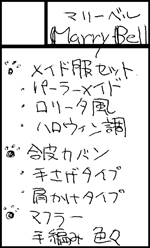 マリーベル
Marry Bell
メイド服セット
・パーラーメイド
・ロリータ風
・ハロウィン調
合皮カバン
・手さげタイプ
・肩かけタイプ
マフラー
手編み 色々